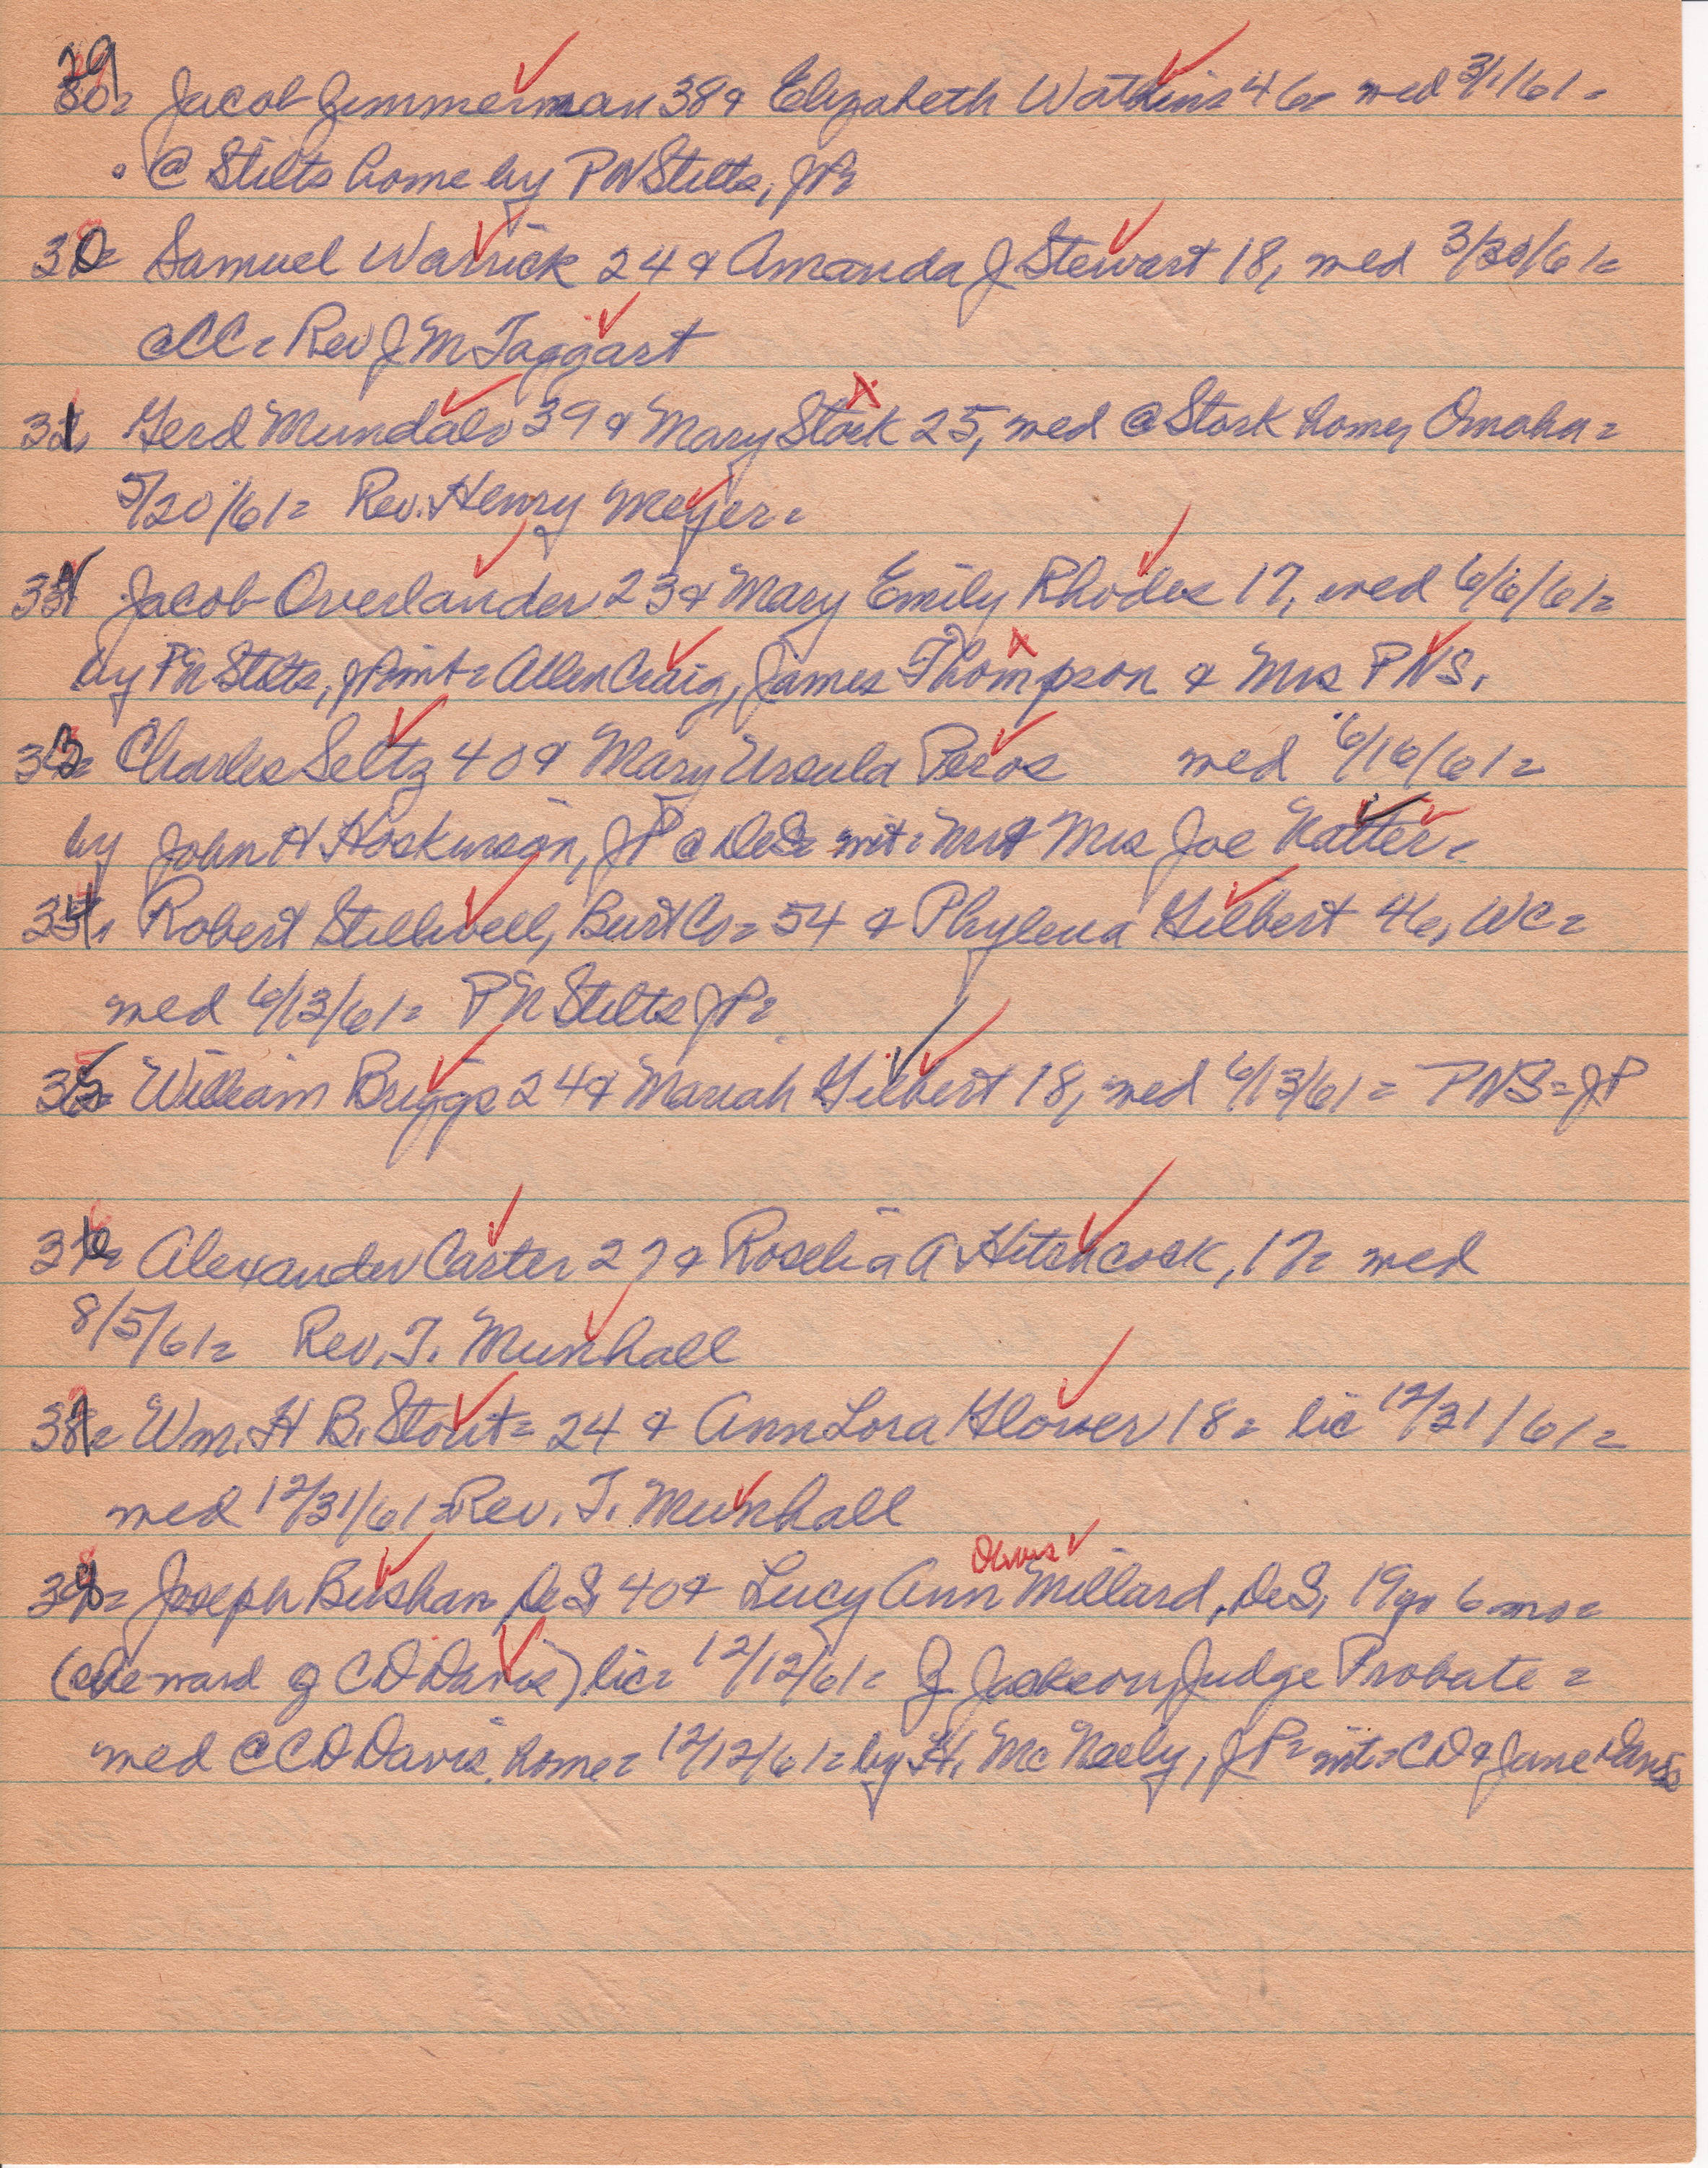 29 Jacob Zimmerman 38 & Elizabeth Watkins 46= med 3/1/61=
@ Stilts home by PN Stilts, JP=
30= Samuel Warrick 24 & Amanda J Stewart 18, med 3/30/61=
@CC= Rev J M Taggart
31, Gerd Mundalo 39 & Mary Stork 25, med @ Stork home, Omaha=
5/20/61= Rev. Henry Meyer=
32 Jacob Overlander 23 & Mary Emily Rhodes 17, med 6/6/61=
by PN Stilts, JP wit= Allen Craig, James Thompson & Mrs PNS.
33= Charles Seltz 40 & Mary Ursula Peros med 6/16/61=
by John H Hoskinson, JP @ DeS= wit= Mr & Mrs Joe Natter=
34, Robert Stillwell, Burt Co= 54 & Phylena Gilbert 46, WC=
med 6/13/61= PN Stilts JP=
35= William Briggs 24 & Mariah Gilbert 18, med 6/13/61= PNS=JP
36= Alexander Carter 27 & Roselia A Hitchcock, 17= med
8/5/61= Rev. T. Munhall
37= Wm. H B. Stout= 24 & Ann Lora Glover 18= lic 12/31/61=
med 12/31/61= Rev. T. Munhall
Davis
38= Joseph Bushan DeS, 40 & Lucy Ann Millard, DeS, 19yr 6 mo=
(the ward of CD Davis) lic= 12/12/61= J. Jackson, Judge Probate=
med @ CD Davis home= 12/12/61= by H. McNeely, JP= wit= CD & Jane Davis